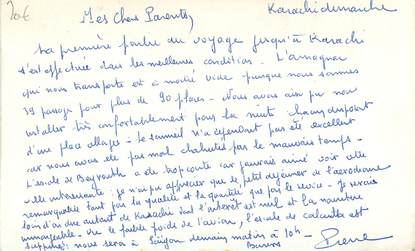 20€
Mes Chers Parents, Karachi dimanche
La première partie du voyage jusqu'à Karachi
s'est effectuée dans les meilleures conditions. L'
qui nous transporte est à moitié vide puisque nous sommes
39 passagers pour plus de 90 places - Nous avons ainsi pu nous
installer très confortablement pour la nuit chacun disposant
d'une place allongée - Le sommeil n'a cependant pas été excellent
car nous avons été pas mal chahutés par le mauvais temps -
L'escale de Beyrouth a été trop courte car j'aurais aimé voir cette
ville intéressante : je n'ai pu apprécier que le petit déjeuner de l'aérodrome
remarquable tant par la qualité et la quantité que par le service - Je serais
loin d'en dire autant de Karachi dont l'intérêt est nul et la nourriture
immangeable - Vu le faible poids de l'avion, l'escale de Calcutta est
supprimée, nous serons à Saigon demain matin à 10h -
Pierre